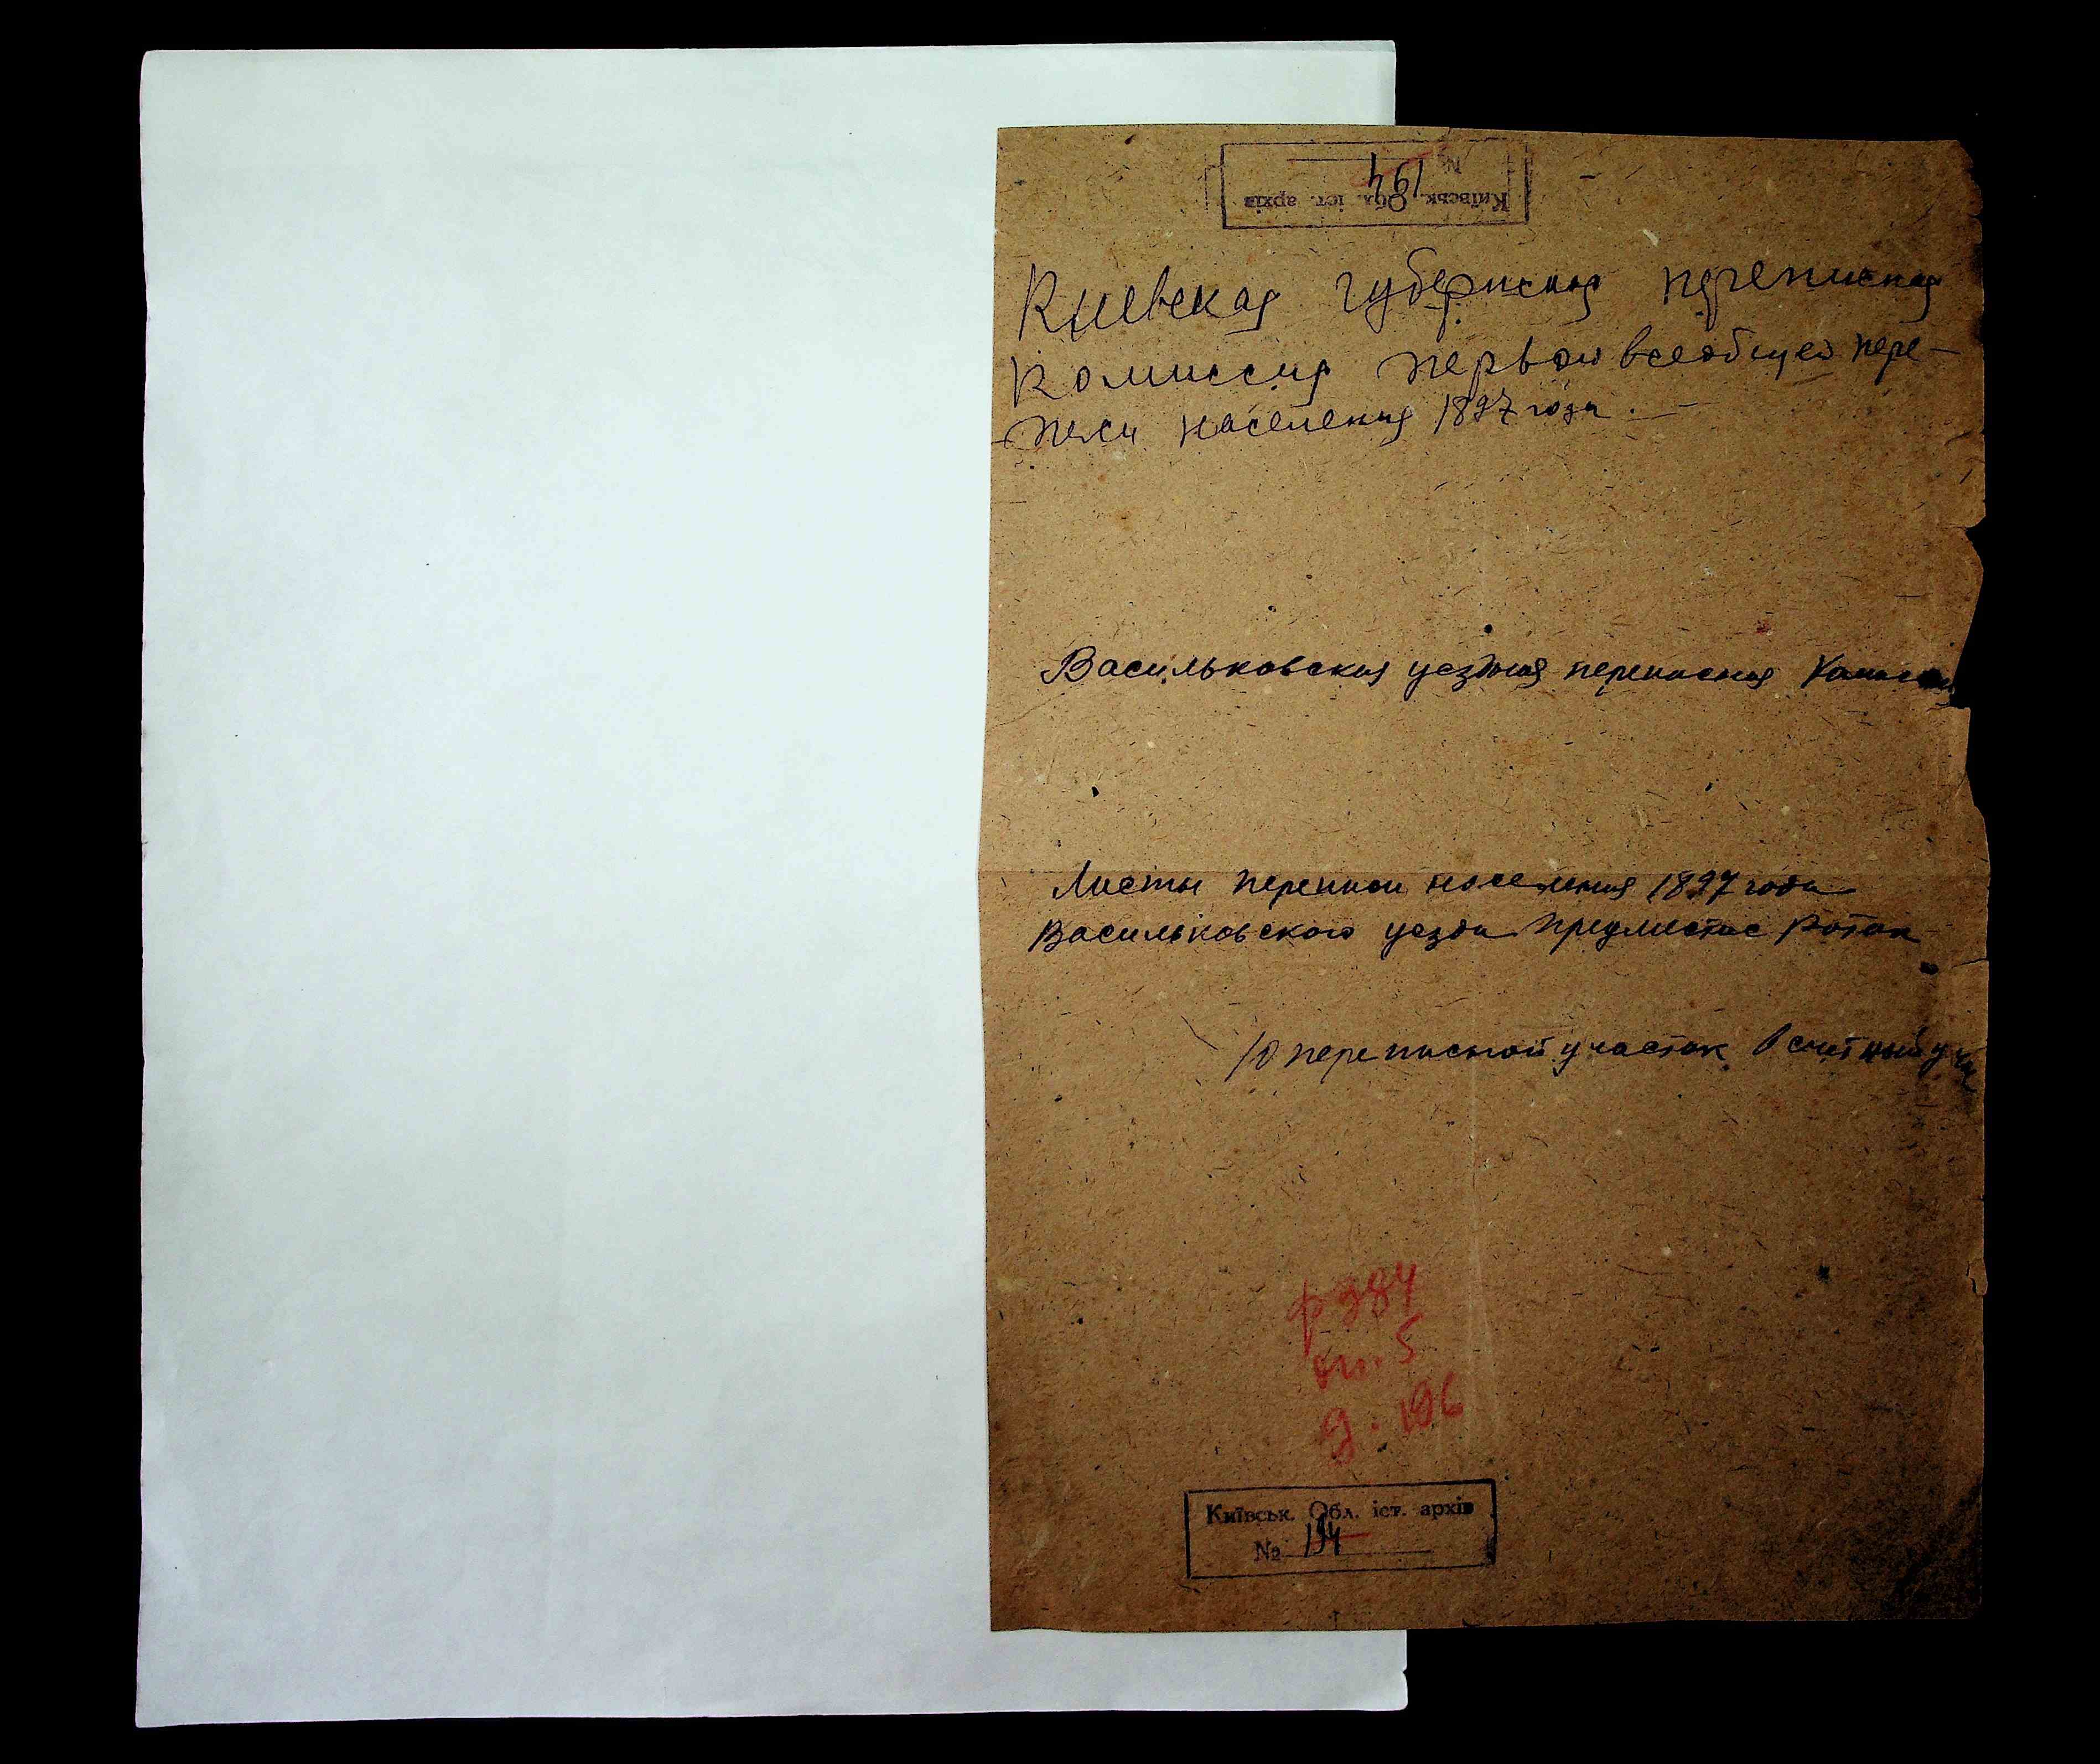 Київськ. Обл. іст. архів
№ 194
Киевская губернская переписная
комиссия первой всеобщей пере-
писи населения 1897 года.
Васильковская уездная переписная
Листы переписи населения 1897 года
Васильковского уезда предместие Роток
10 переписной участок счетный уча
ф 384
оп. 5
д. 196
Київськ. Обл. іст. архів
№ 194